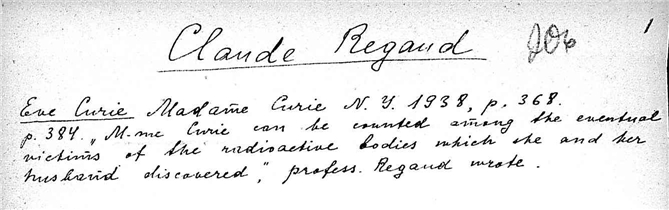 Claude Regaud 206 1
Eve Curie Madame Curie N. Y. 1938, p. 368.
p. 384. „M-me Curie can be counted among the eventual
victims of the radioactive bodies which she and her
husband discovered", profess. Regaud wrote.